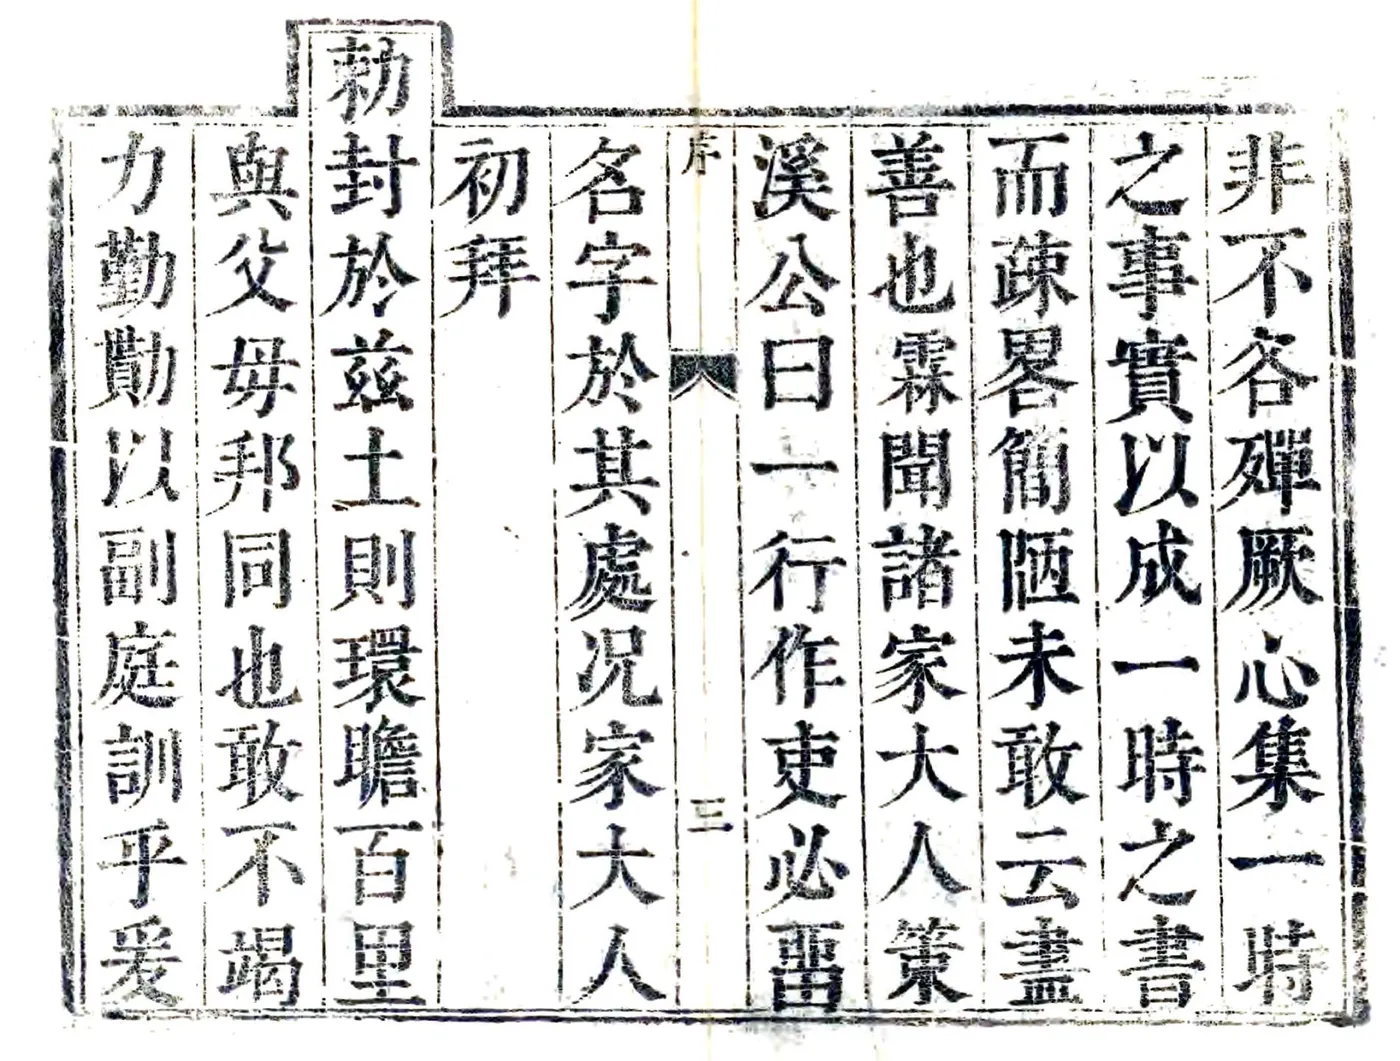 非不各殫厥心集一時
之事實以成一時之書
而疎畧簡陋未敢云盡
善也霖聞諸家大人策
溪公曰一行作吏必畱
序
三
名字於其處况家大人
初拜
勅封於兹土則環瞻百里
與父毋邦同也敢不竭
力勤勩以副庭訓乎爰